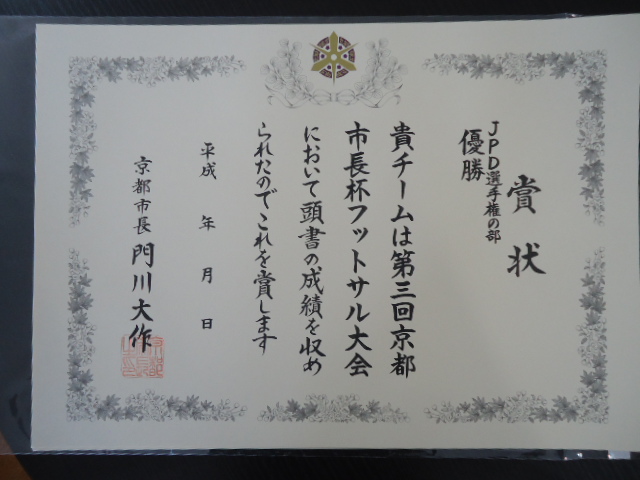 賞状
JPD選手権の部
優勝
貴チームは第三回京都
市長杯フットサル大会
において頭書の成績を収め
られたのでこれを賞します
平成 年 月 日
京都市長 門川大作